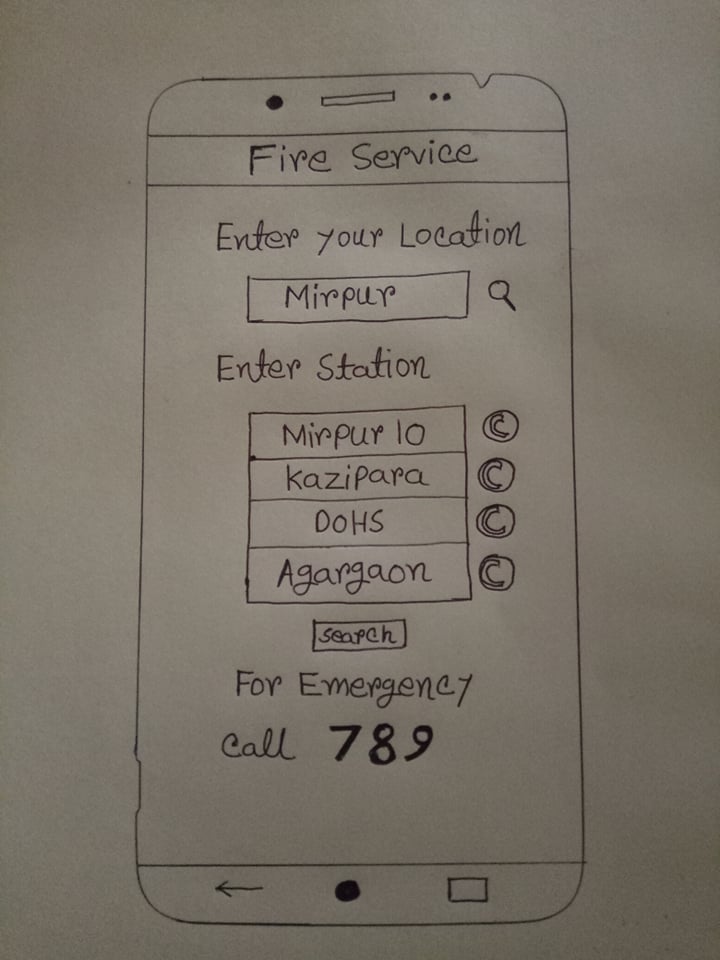 Fire Service
Enter your Location
Mirpur
Enter Station
Mirpur 10
Kazipara
DOHS
Agargaon
search
For Emergency
Call 789